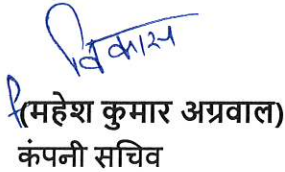 विकास
(महेश कुमार अग्रवाल)
कंपनी सचिव